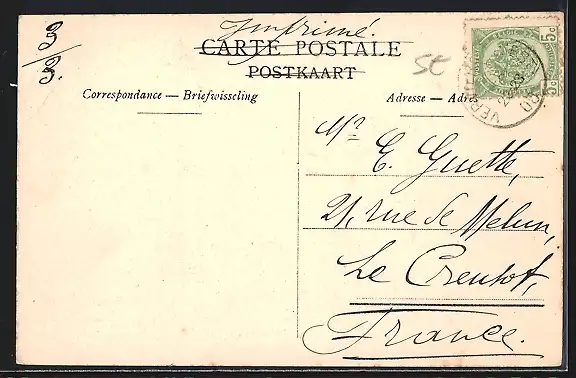 Imprimé.
CARTE POSTALE
POSTKAART
Correspondance — Briefwisseling
Adresse — Adres
3/3.
St
5c 5c
Mr E. Guette,
21, rue de Melun,
Le Creusot,
France.